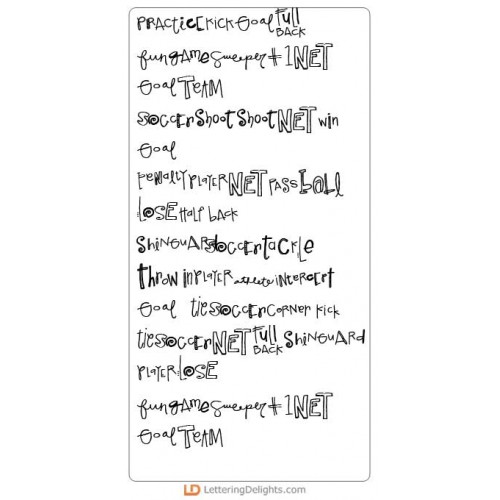 PRACTICE KICK GOAL FULL BACK
fun game sweeper #1 NET
Goal TEAM
SOCCER Shoot Shoot NET win
Goal
PENALTY PLAYER NET PASS ball
LOSE HALF BACK
SHINGUARD SOCCER TACKLE
THROW IN PLAYER athlete INTERCEPT
Goal tie SOCCER CORNER KICK
tie SOCCER NET FULL BACK SHINGUARD
PLAYER LOSE
fun game sweeper #1 NET
Goal TEAM
LD LetteringDelights.com